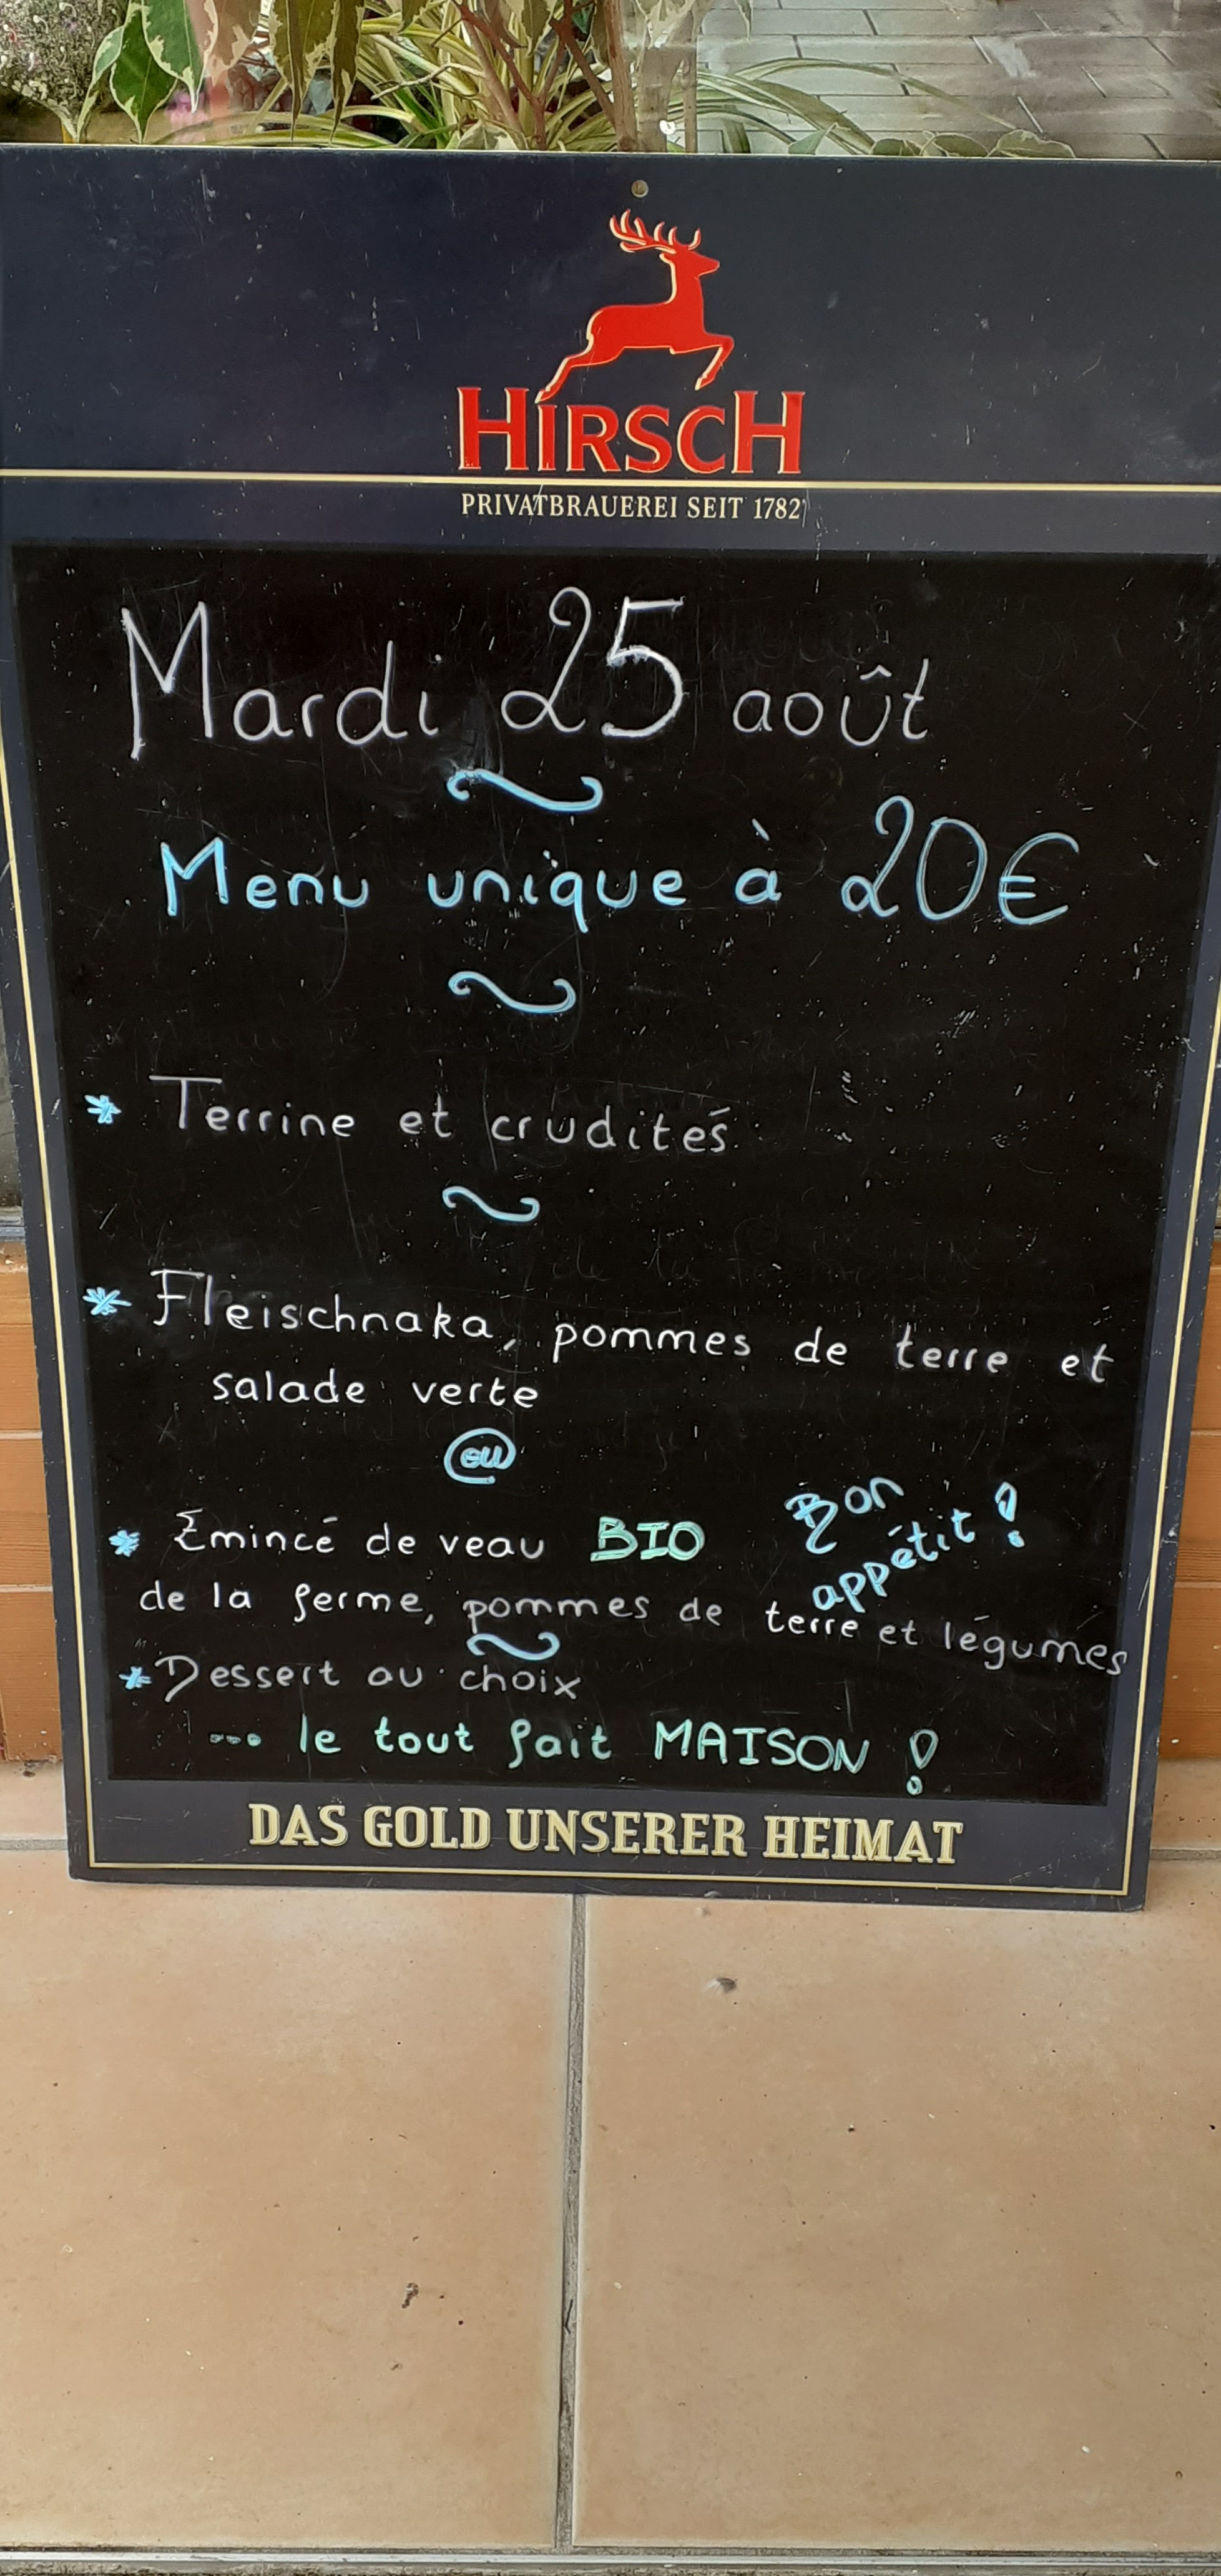 HIRSCH
PRIVATBRAUEREI SEIT 1782
Mardi 25 août
Menu unique à 20€
* Terrine et crudités
* Fleischnaka, pommes de terre et
salade verte
ou
* Emincé de veau BIO
de la ferme, pommes de terre et légumes
Bon
appétit !
* Dessert au choix
... le tout fait MAISON !
DAS GOLD UNSERER HEIMAT